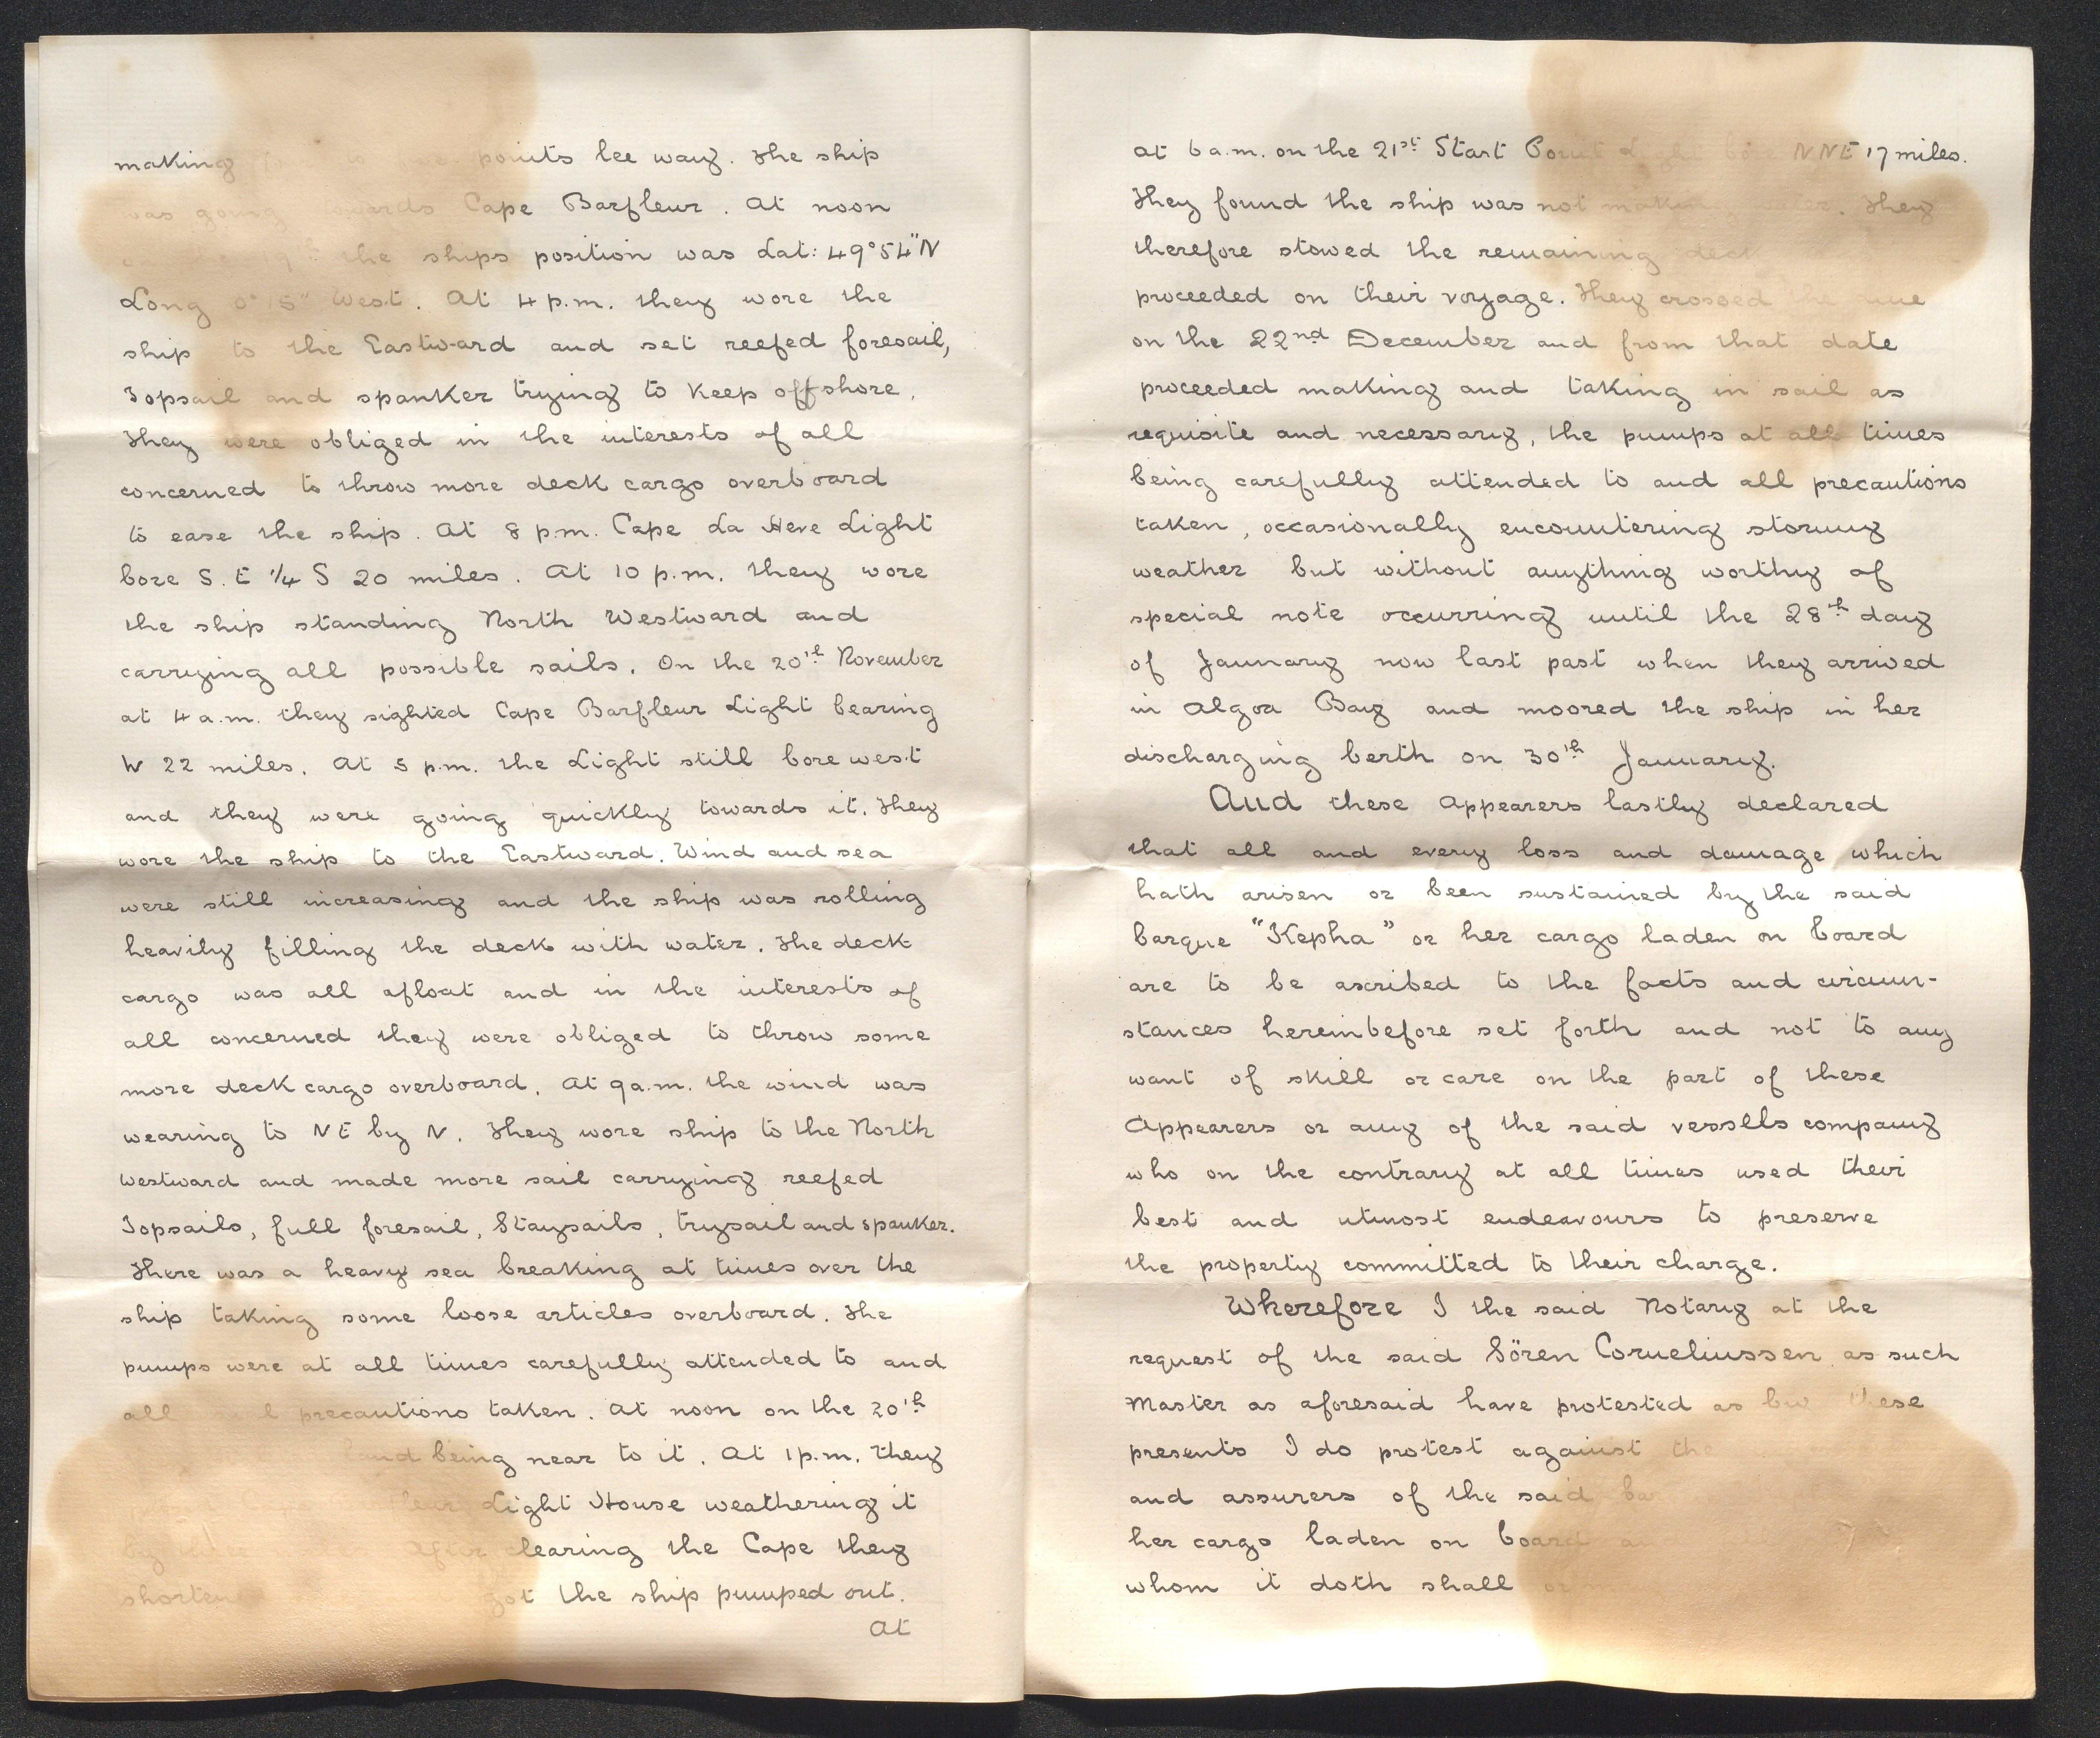 making points lee way. The ship
was going towards Cape Barfleur. At noon
the ships position was Lat: 49°54"N
Long 0°15" West. At 4 p.m. they wore the
ship to the Eastward and set reefed foresail,
Topsail and spanker trying to keep offshore.
They were obliged in the interests of all
concerned to throw more deck cargo overboard
to ease the ship. At 8 p.m. Cape La Heve Light
bore S. E ¼ S 20 miles. At 10 p.m. they wore
the ship standing North Westward and
carrying all possible sails. On the 20th November
at 4 a.m. they sighted Cape Barfleur Light bearing
W 22 miles. At 5 p.m. the Light still bore west
and they were going quickly towards it. They
wore the ship to the Eastward. Wind and sea
were still increasing and the ship was rolling
heavily filling the deck with water. The deck
cargo was all afloat and in the interests of
all concerned they were obliged to throw some
more deck cargo overboard. At 9 a.m. the wind was
wearing to NE by N. They wore ship to the North
Westward and made more sail carrying reefed
Topsails, full foresail, Staysails, trysail and spanker.
There was a heavy sea breaking at times over the
ship taking some loose articles overboard. The
pumps were at all times carefully attended to and
all precautions taken. At noon on the 20th
land being near to it. At 1 p.m. they
Light House weathering it
After clearing the Cape they
got the ship pumped out.
At
at 6 a.m. on the 21st Start Point Light bore NNE 17 miles.
They found the ship was not making water. They
therefore stowed the remaining deck
proceeded on their voyage. They crossed the Line
on the 22nd December and from that date
proceeded making and taking in sail as
requisite and necessary, the pumps at all times
being carefully attended to and all precautions
taken, occasionally encountering stormy
weather but without anything worthy of
special note occurring until the 28th day
of January now last past when they arrived
in Algoa Bay and moored the ship in her
discharging berth on 30th January.
And these Appearers lastly declared
that all and every loss and damage which
hath arisen or been sustained by the said
barque "Kepha" or her cargo laden on board
are to be ascribed to the facts and circum-
stances hereinbefore set forth and not to any
want of skill or care on the part of these
Appearers or any of the said vessells company
who on the contrary at all times used their
best and utmost endeavours to preserve
the property committed to their charge.
Wherefore I the said Notary at the
request of the said Sören Corneliussen as such
Master as aforesaid have protested as by these
presents I do protest against the
and assurers of the said
her cargo laden on board
whom it doth shall or